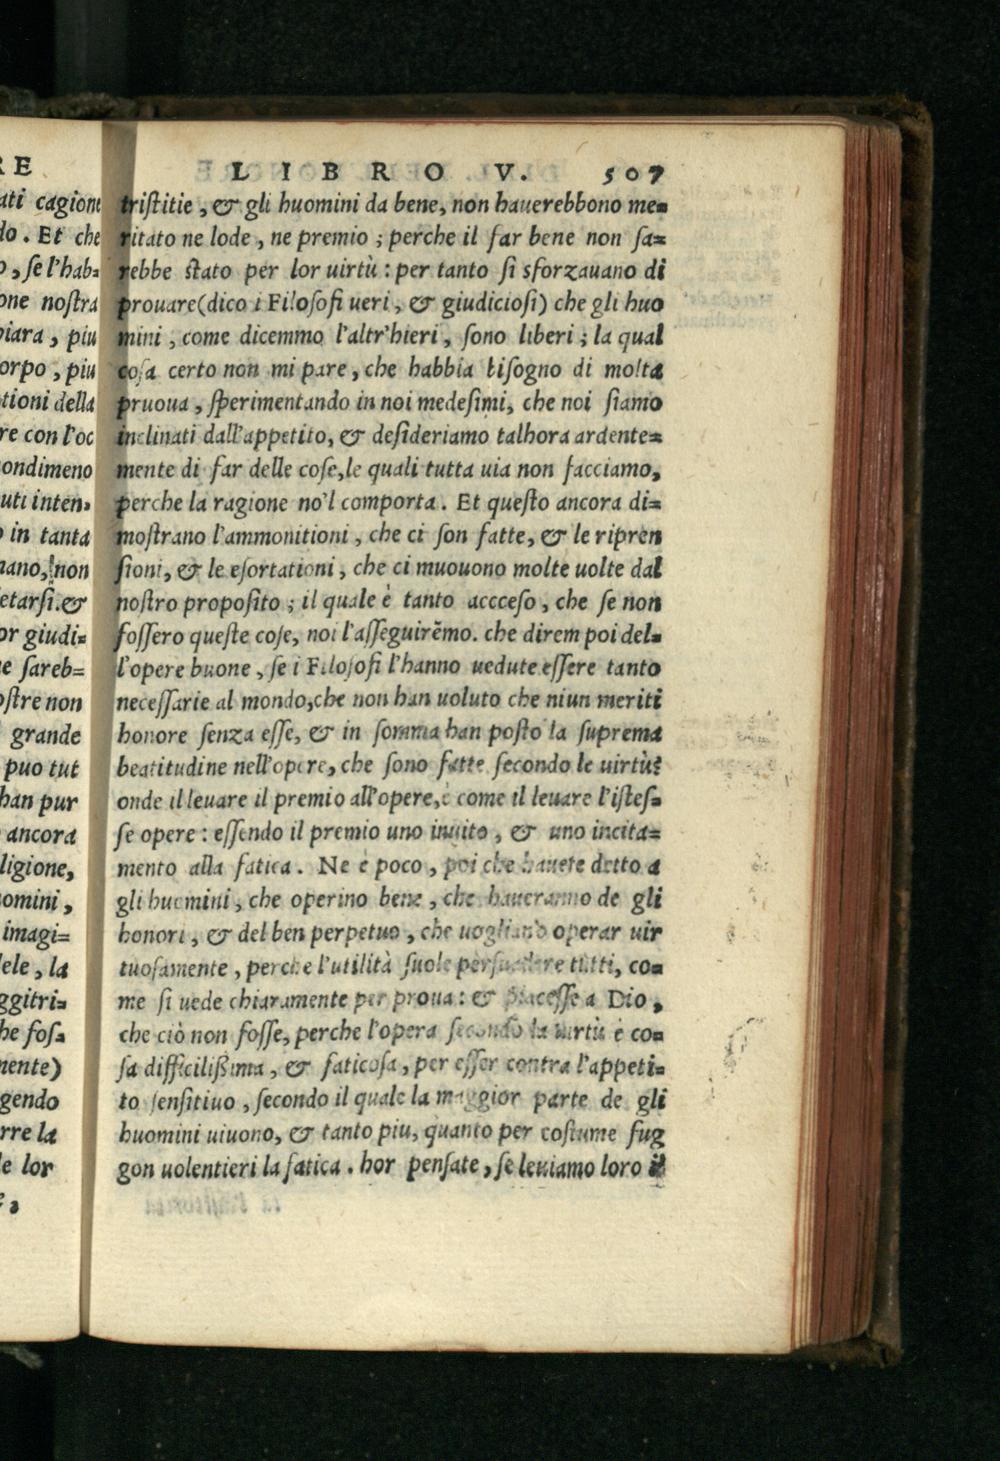 LIBRO V. 507
tristitie, & gli huomini da bene, non hauerebbono me=
ritato ne lode, ne premio; perche il far bene non ſa=
rebbe ſtato per lor uirtù: per tanto ſi sforzauano di
prouare(dico i Filoſofi ueri, & giudicioſi) che gli huo
mini, come dicemmo l'altr'hieri, ſono liberi; la qual
coſa certo non mi pare, che habbia biſogno di molta
pruoua, ſperimentando in noi medeſimi, che noi ſiamo
inclinati dall'appetito, & deſideriamo talhora ardente=
mente di far delle coſe,le quali tutta uia non facciamo,
perche la ragione no'l comporta. Et queſto ancora di=
moſtrano l'ammonitioni, che ci ſon fatte, & le ripren
ſioni, & le eſortationi, che ci muouono molte uolte dal
noſtro propoſito; il quale è tanto accceſo, che ſe non
foſſero queſte coſe, noi l'aſſeguirẽmo. che direm poi del=
l'opere buone, ſe i Filoſofi l'hanno uedute eſſere tanto
neceſſarie al mondo,che non han uoluto che niun meriti
honore ſenza eſſe, & in ſomma han poſto la ſuprema
beatitudine nell'opere, che ſono fatte ſecondo le uirtù?
onde il leuare il premio all'opere,è come il leuare l'iſteſ=
ſe opere: eſſendo il premio uno inuito, & uno incita=
mento alla fatica. Ne è poco, poi che hauete detto a
gli huomini, che operino bene, che haueranno de gli
honori, & del ben perpetuo, che uogliano operar uir
tuoſamente, perche l'utilità ſuole perſuadere tutti, co=
me ſi uede chiaramente per proua: & piaceſſe a Dio,
che ciò non foſſe, perche l'opera ſecondo la uirtù è co=
ſa difficiliſſima, & faticoſa, per eſſer contra l'appeti=
to ſenſitiuo, ſecondo il quale la maggior parte de gli
huomini uiuono, & tanto piu, quanto per coſtume fug
gon uolentieri la fatica. hor penſate, ſe leuiamo loro il
RE
ati cagione
do. Et che
o, ſe l'hab=
one noſtra
hiara, piu
orpo, piu
tioni della
re con l'oc
ondimeno
uti inten=
o in tanta
mano, non
etarſi.&
or giudi=
e ſareb=
oſtre non
grande
puo tut
han pur
ancora
ligione,
omini,
imagi=
ele, la
ggitri=
he foſ=
mente)
gendo
rre la
le lor